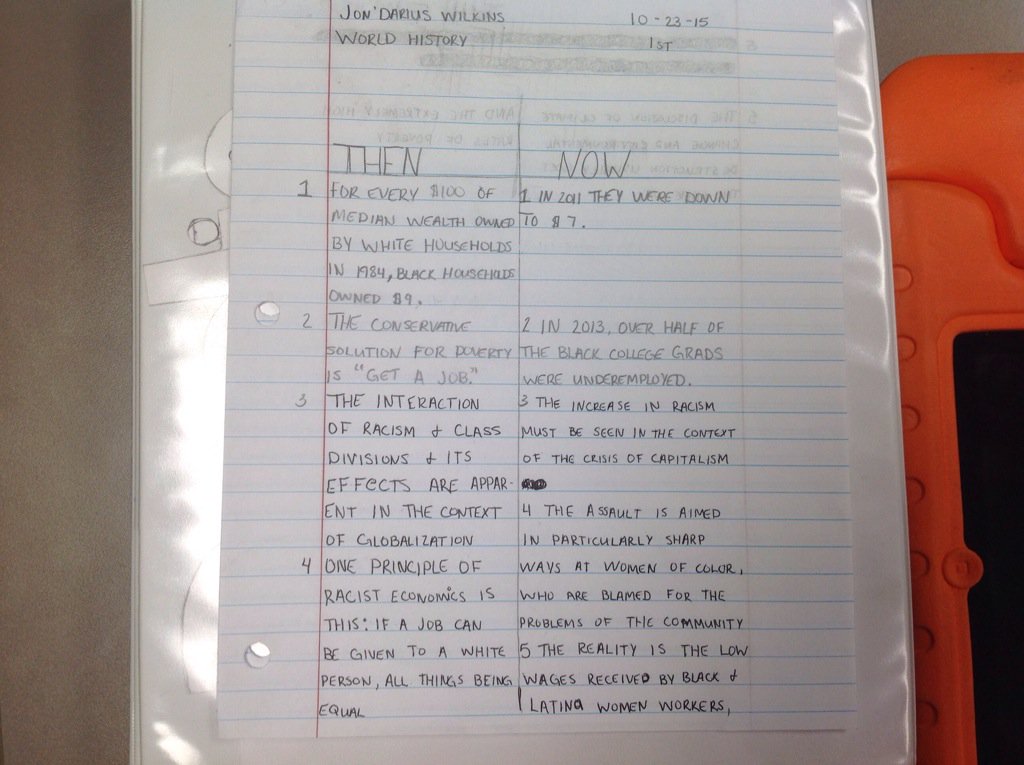 JON'DARIUS WILKINS 10-23-15
WORLD HISTORY 1ST
THEN
1 FOR EVERY $100 OF
MEDIAN WEALTH OWNED
BY WHITE HOUSEHOLDS
IN 1984, BLACK HOUSEHOLDS
OWNED $9.
2 THE CONSERVATIVE
SOLUTION FOR POVERTY
IS "GET A JOB."
3 THE INTERACTION
OF RACISM & CLASS
DIVISIONS & ITS
EFFECTS ARE APPAR-
ENT IN THE CONTEXT
OF GLOBALIZATION
4 ONE PRINCIPLE OF
RACIST ECONOMICS IS
THIS: IF A JOB CAN
BE GIVEN TO A WHITE
PERSON, ALL THINGS BEING
EQUAL
NOW
1 IN 2011 THEY WERE DOWN
TO $7.
2 IN 2013, OVER HALF OF
THE BLACK COLLEGE GRADS
WERE UNDEREMPLOYED.
3 THE INCREASE IN RACISM
MUST BE SEEN IN THE CONTEXT
OF THE CRISIS OF CAPITALISM
4 THE ASSAULT IS AIMED
IN PARTICULARLY SHARP
WAYS AT WOMEN OF COLOR,
WHO ARE BLAMED FOR THE
PROBLEMS OF THE COMMUNITY
5 THE REALITY IS THE LOW
WAGES RECEIVED BY BLACK &
LATINA WOMEN WORKERS,